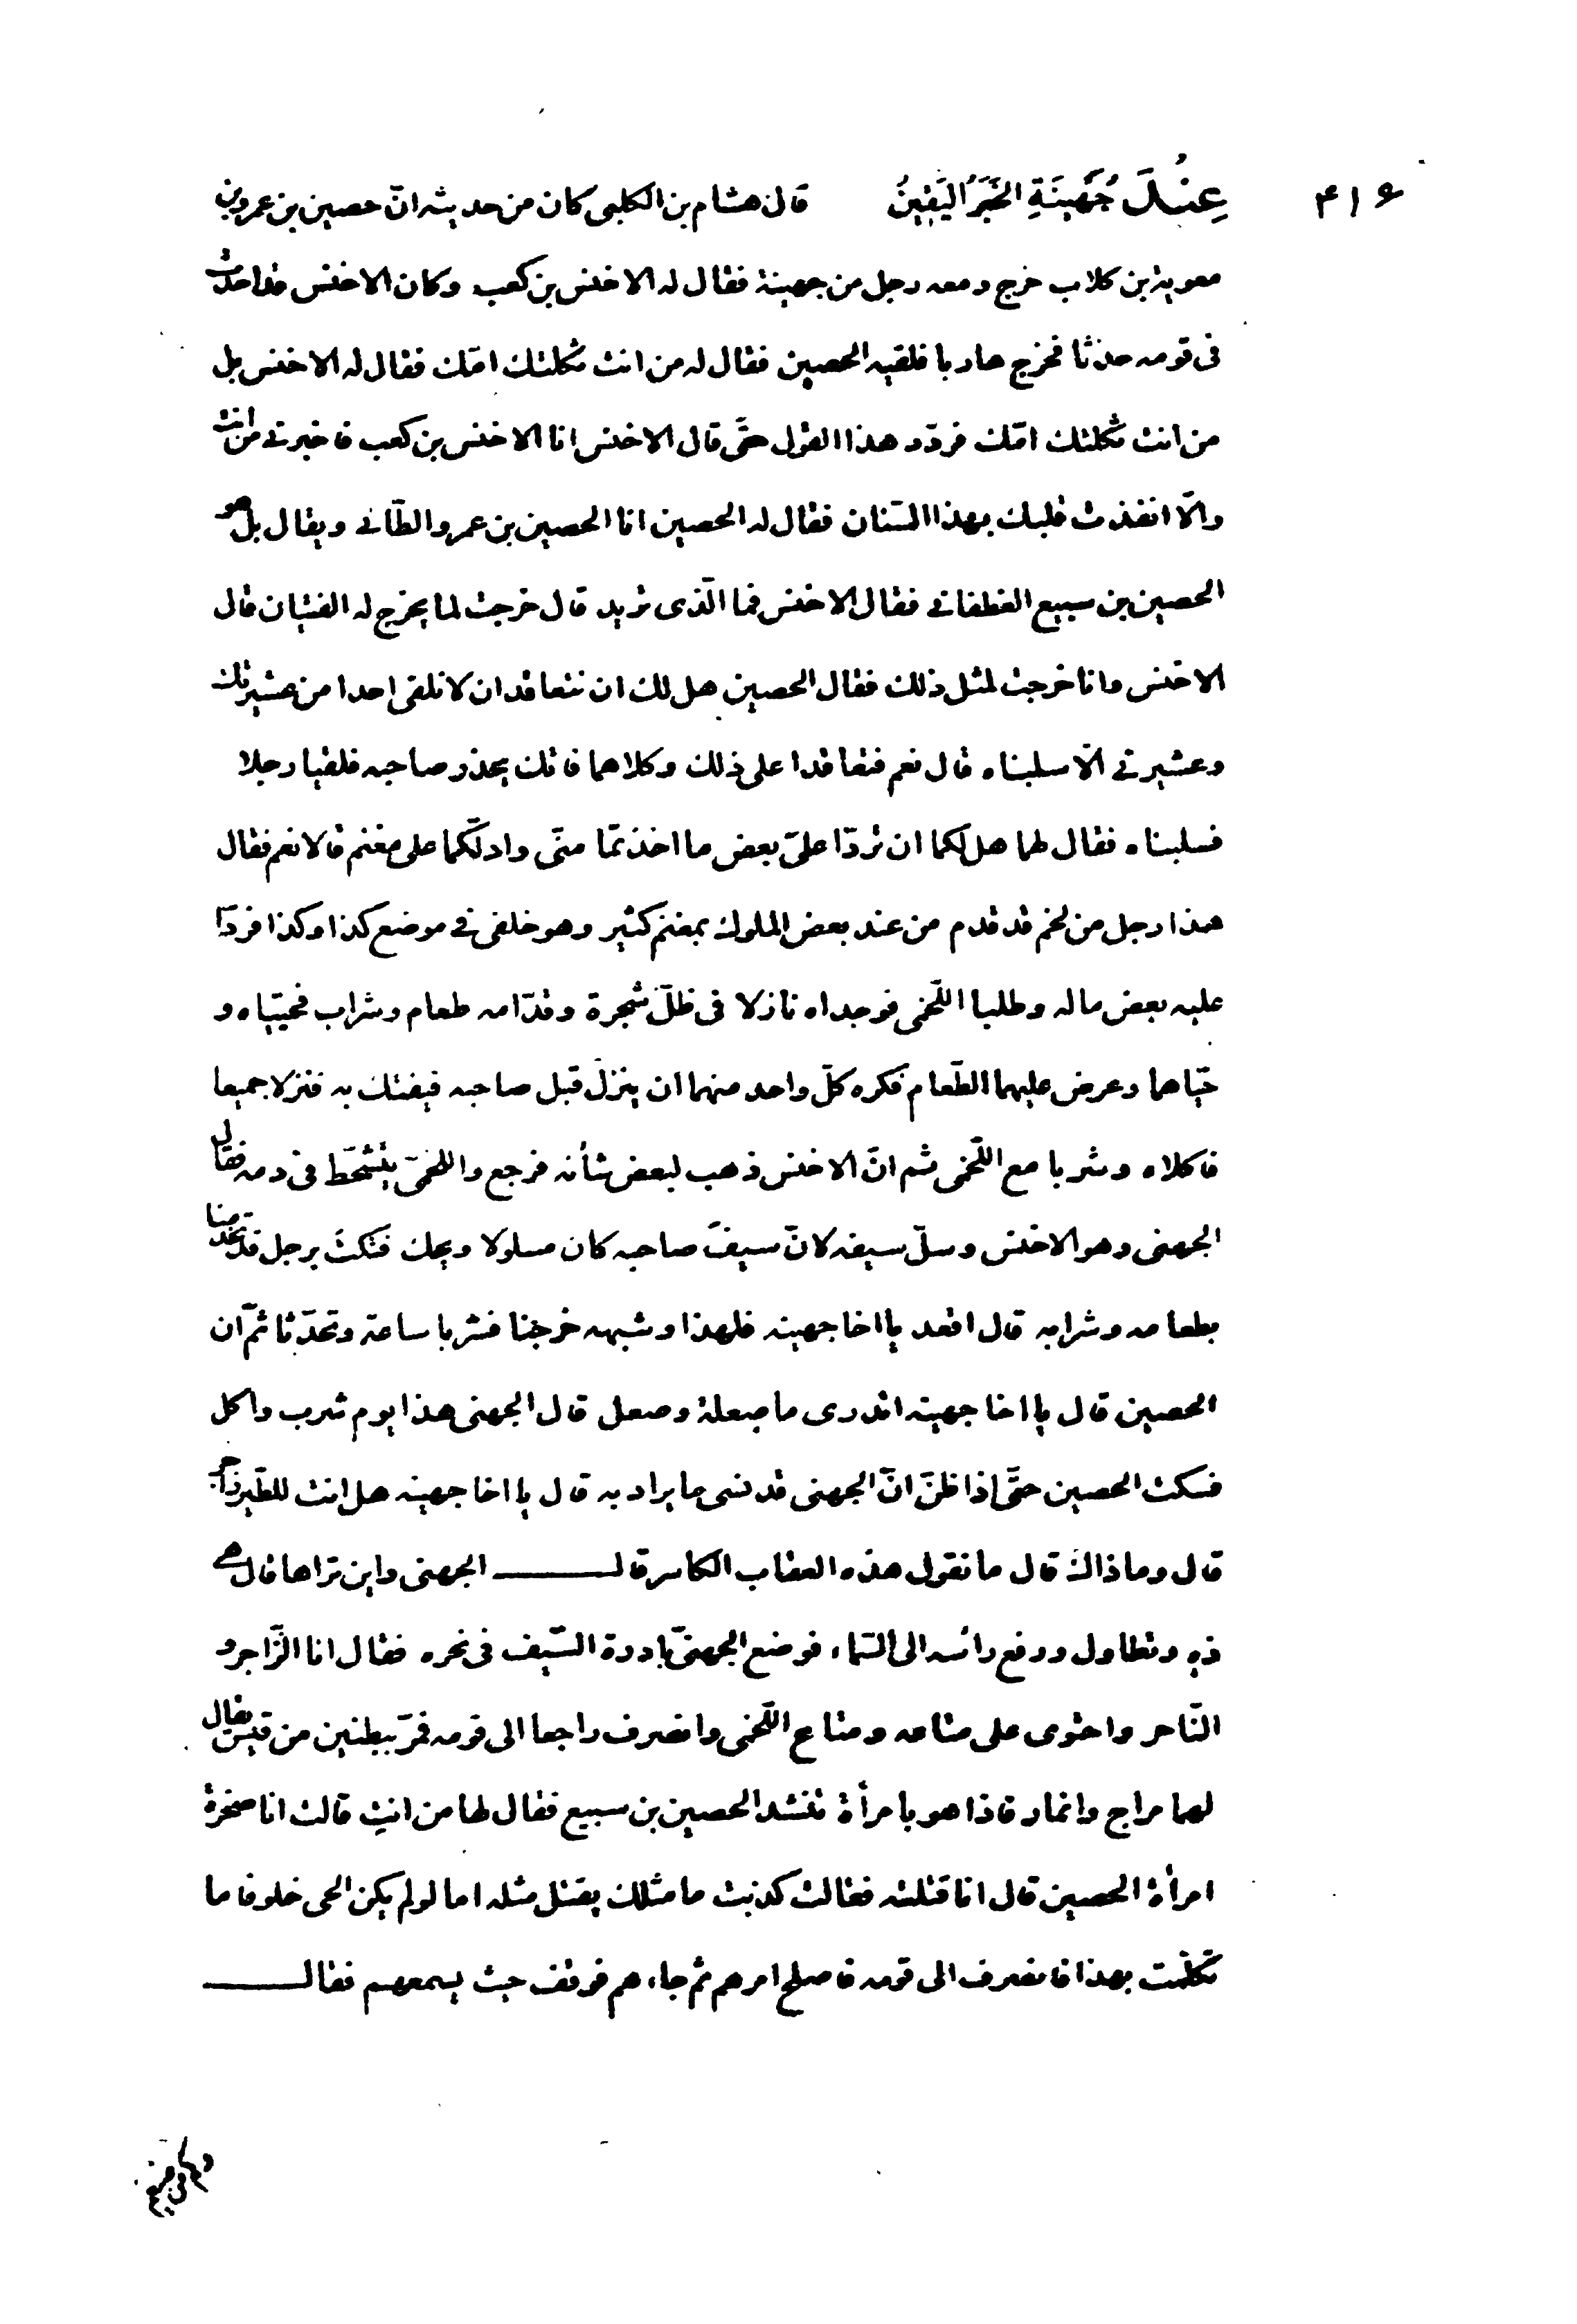 ۴۱۶
عِنْدَ جُهَيْنَةَ الخَبَرُ اليَقِينُ قال هشام بن الكلبى كان من حديثه انّ حصين بن عمرو بن
معوية بن كلاب خرج ومعه رجل من جهينة فقال له الاخنس بن كعب وكان الاخنس قد احدث
فى قومه حدثا فخرج هاربا فلقيه الحصين فقال له من انت ثكلتك امّك فقال له الاخنس بل
من انت ثكلتك امّك فردّد هذا القول حتّى قال الاخنس انا الاخنس بن كعب فاخبرنى من انت
والّا انفذت قلبك بهذا السّنان فقال له الحصين انا الحصين بن عمرو الطّانى ويقال بل هو
الحصين بن سبيع الغطفانى فقال الاخنس فما الّذى تريد قال خرجت لما يخرج له الفتيان قال
الاخنس وانا خرجت لمثل ذلك فقال الحصين هل لك ان نتعاقد ان لا نلقى احدا من عشيرتك
وعشيرتى الّا سلبناه قال نعم فتعاقدا على ذلك وكلاهما فاتك يحذر صاحبه فلقيا رجلا
فسلبناه فقال لهما هل لكما ان تردّا علىّ بعض ما اخذتما منّى وادلّكما على مغنم قالا نعم فقال
هذا رجل من لخم قد قدم من عند بعض الملوك بمغنم كثير وهو خلفى فى موضع كذا وكذا فردّا
عليه بعض ماله وطلبا اللّخمى فوجداه نازلا فى ظلّ شجرة وقدّامه طعام وشراب فحيّياه و
حيّاهما وعرض عليهما الطّعام فكره كلّ واحد منهما ان ينزل قبل صاحبه فيفتك به فنزلا جميعا
فاكلاه وشربا مع اللّخمى ثم انّ الاخنس ذهب لبعض شأنه فرجع واللخمىّ يتشحّط فى دمه فقال
الجهنى وهو الاخنس وسلّ سيفه لانّ سيف صاحبه كان مسلولا ويحك فتكت برجل قد تحرّمنا
بطعامه وشرابه قال اقعد يا اخا جهينه فلهذا وشبهه خرجنا فشربا ساعة وتحدّثا ثمّ ان
الحصين قال يا اخا جهينه اتدرى ما صعلة وصعل قال الجهنى هذا يوم شرب واكل
فسكت الحصين حتّى اذا ظنّ انّ الجهنى قد نسى ما يراد به قال يا اخا جهينه هل انت للطّير زاجر
قال وما ذاك قال ما تقول هذه العقاب الكاسر قال الجهنى واين تراها قال هى
ذه وتطاول ورفع رائسه الى السّماء فوضع الجهنىّ بادرة السّيف فى نحره فقال انا الزّاجر و
النّاحر واحتوى على متاعه ومتاع اللّخمى وانصرف راجعا الى قومه فمرّ ببطنين من قيس يقال
لهما مراح وانمار فاذا هو بامرأة تنشد الحصين بن سبيع فقال لها من انت قالت انا صخرة
امرأة الحصين قال انا قتلته فقالت كذبت ما مثلك يقتل مثله اما لو لم يكن الحى خلوفا ما
تكلّمت بهذا فانصرف الى قومه فاصلح امرهم ثم جاءهم فوقف حيث يسمعهم فقال